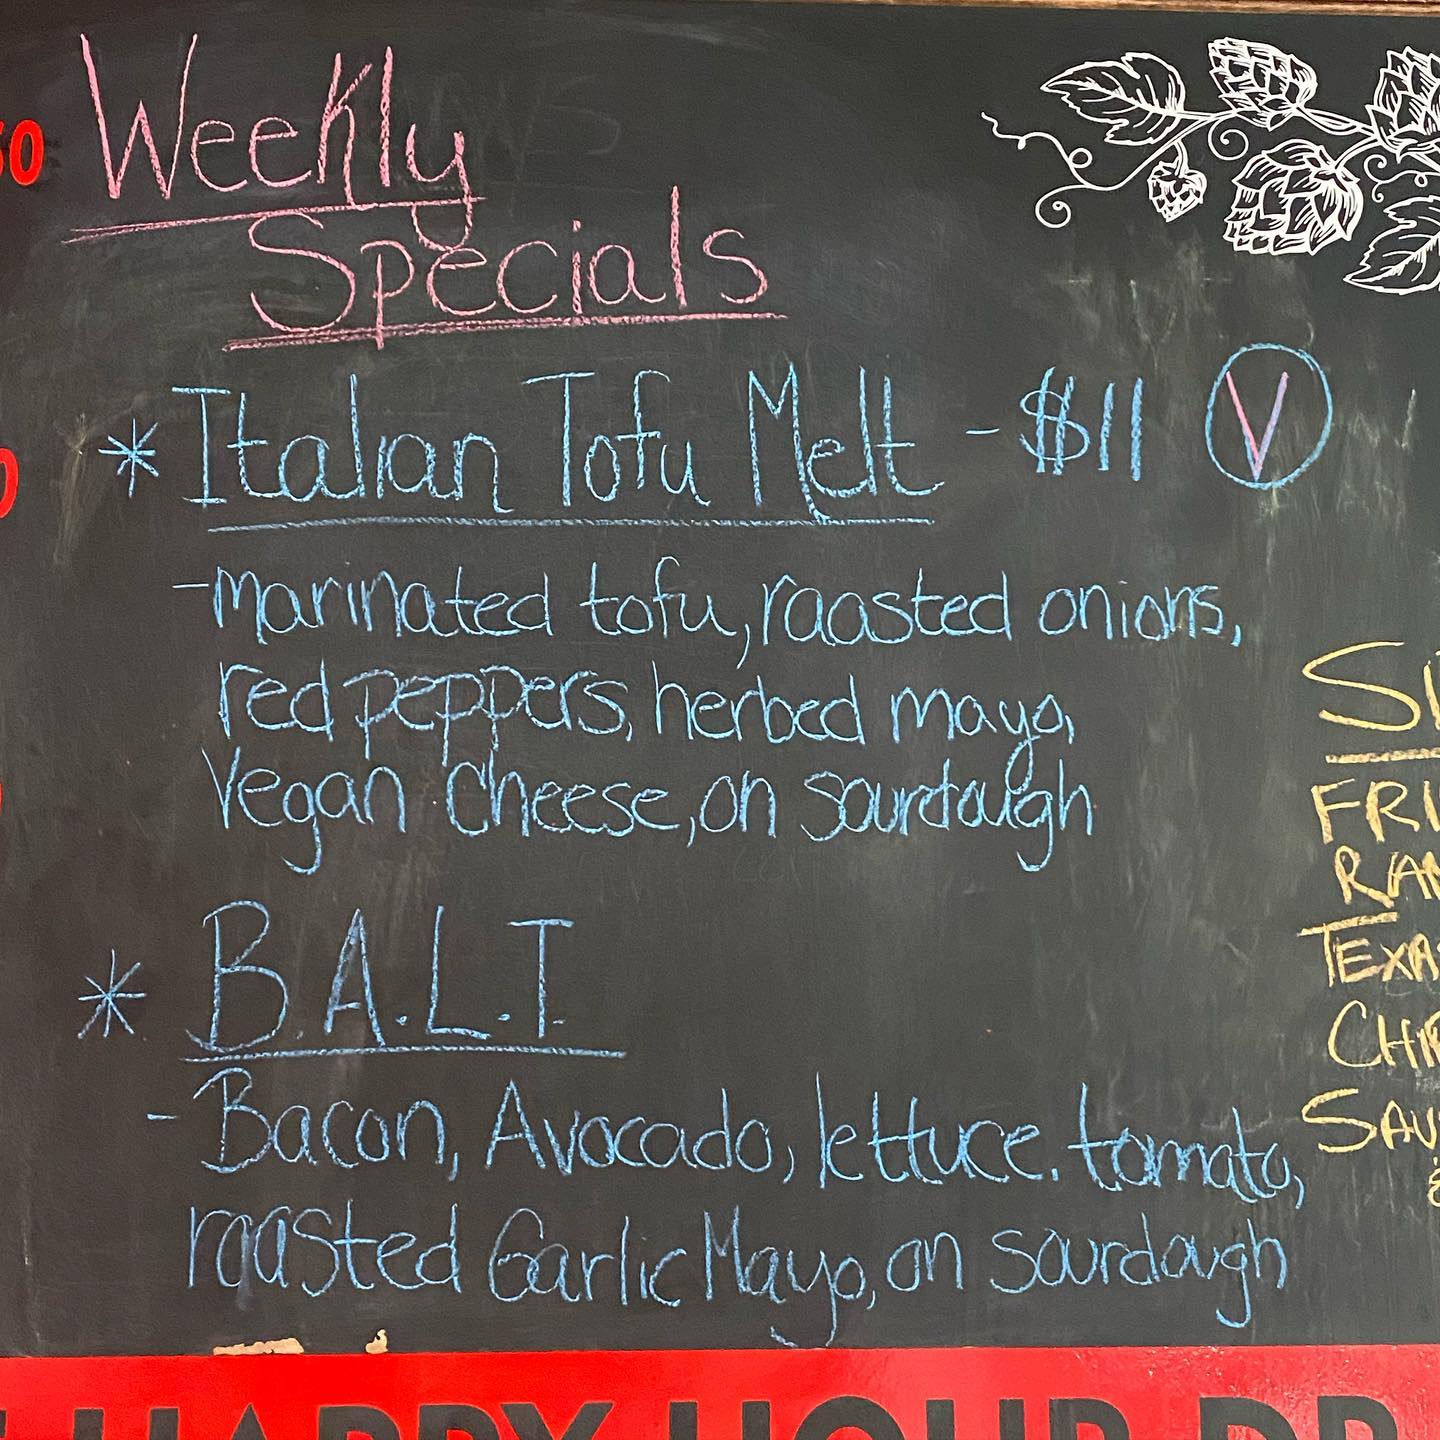 Weekly
Specials
* Italian Tofu Melt - $11 Ⓥ
- marinated tofu, roasted onions,
red peppers, herbed mayo,
Vegan cheese, on sourdough
* B.A.L.T.
- Bacon, Avocado, lettuce. tomato,
roasted Garlic Mayo, on sourdough
FRI
RAN
TEXAS
CHI
SAV
HAPPY HOUR DR